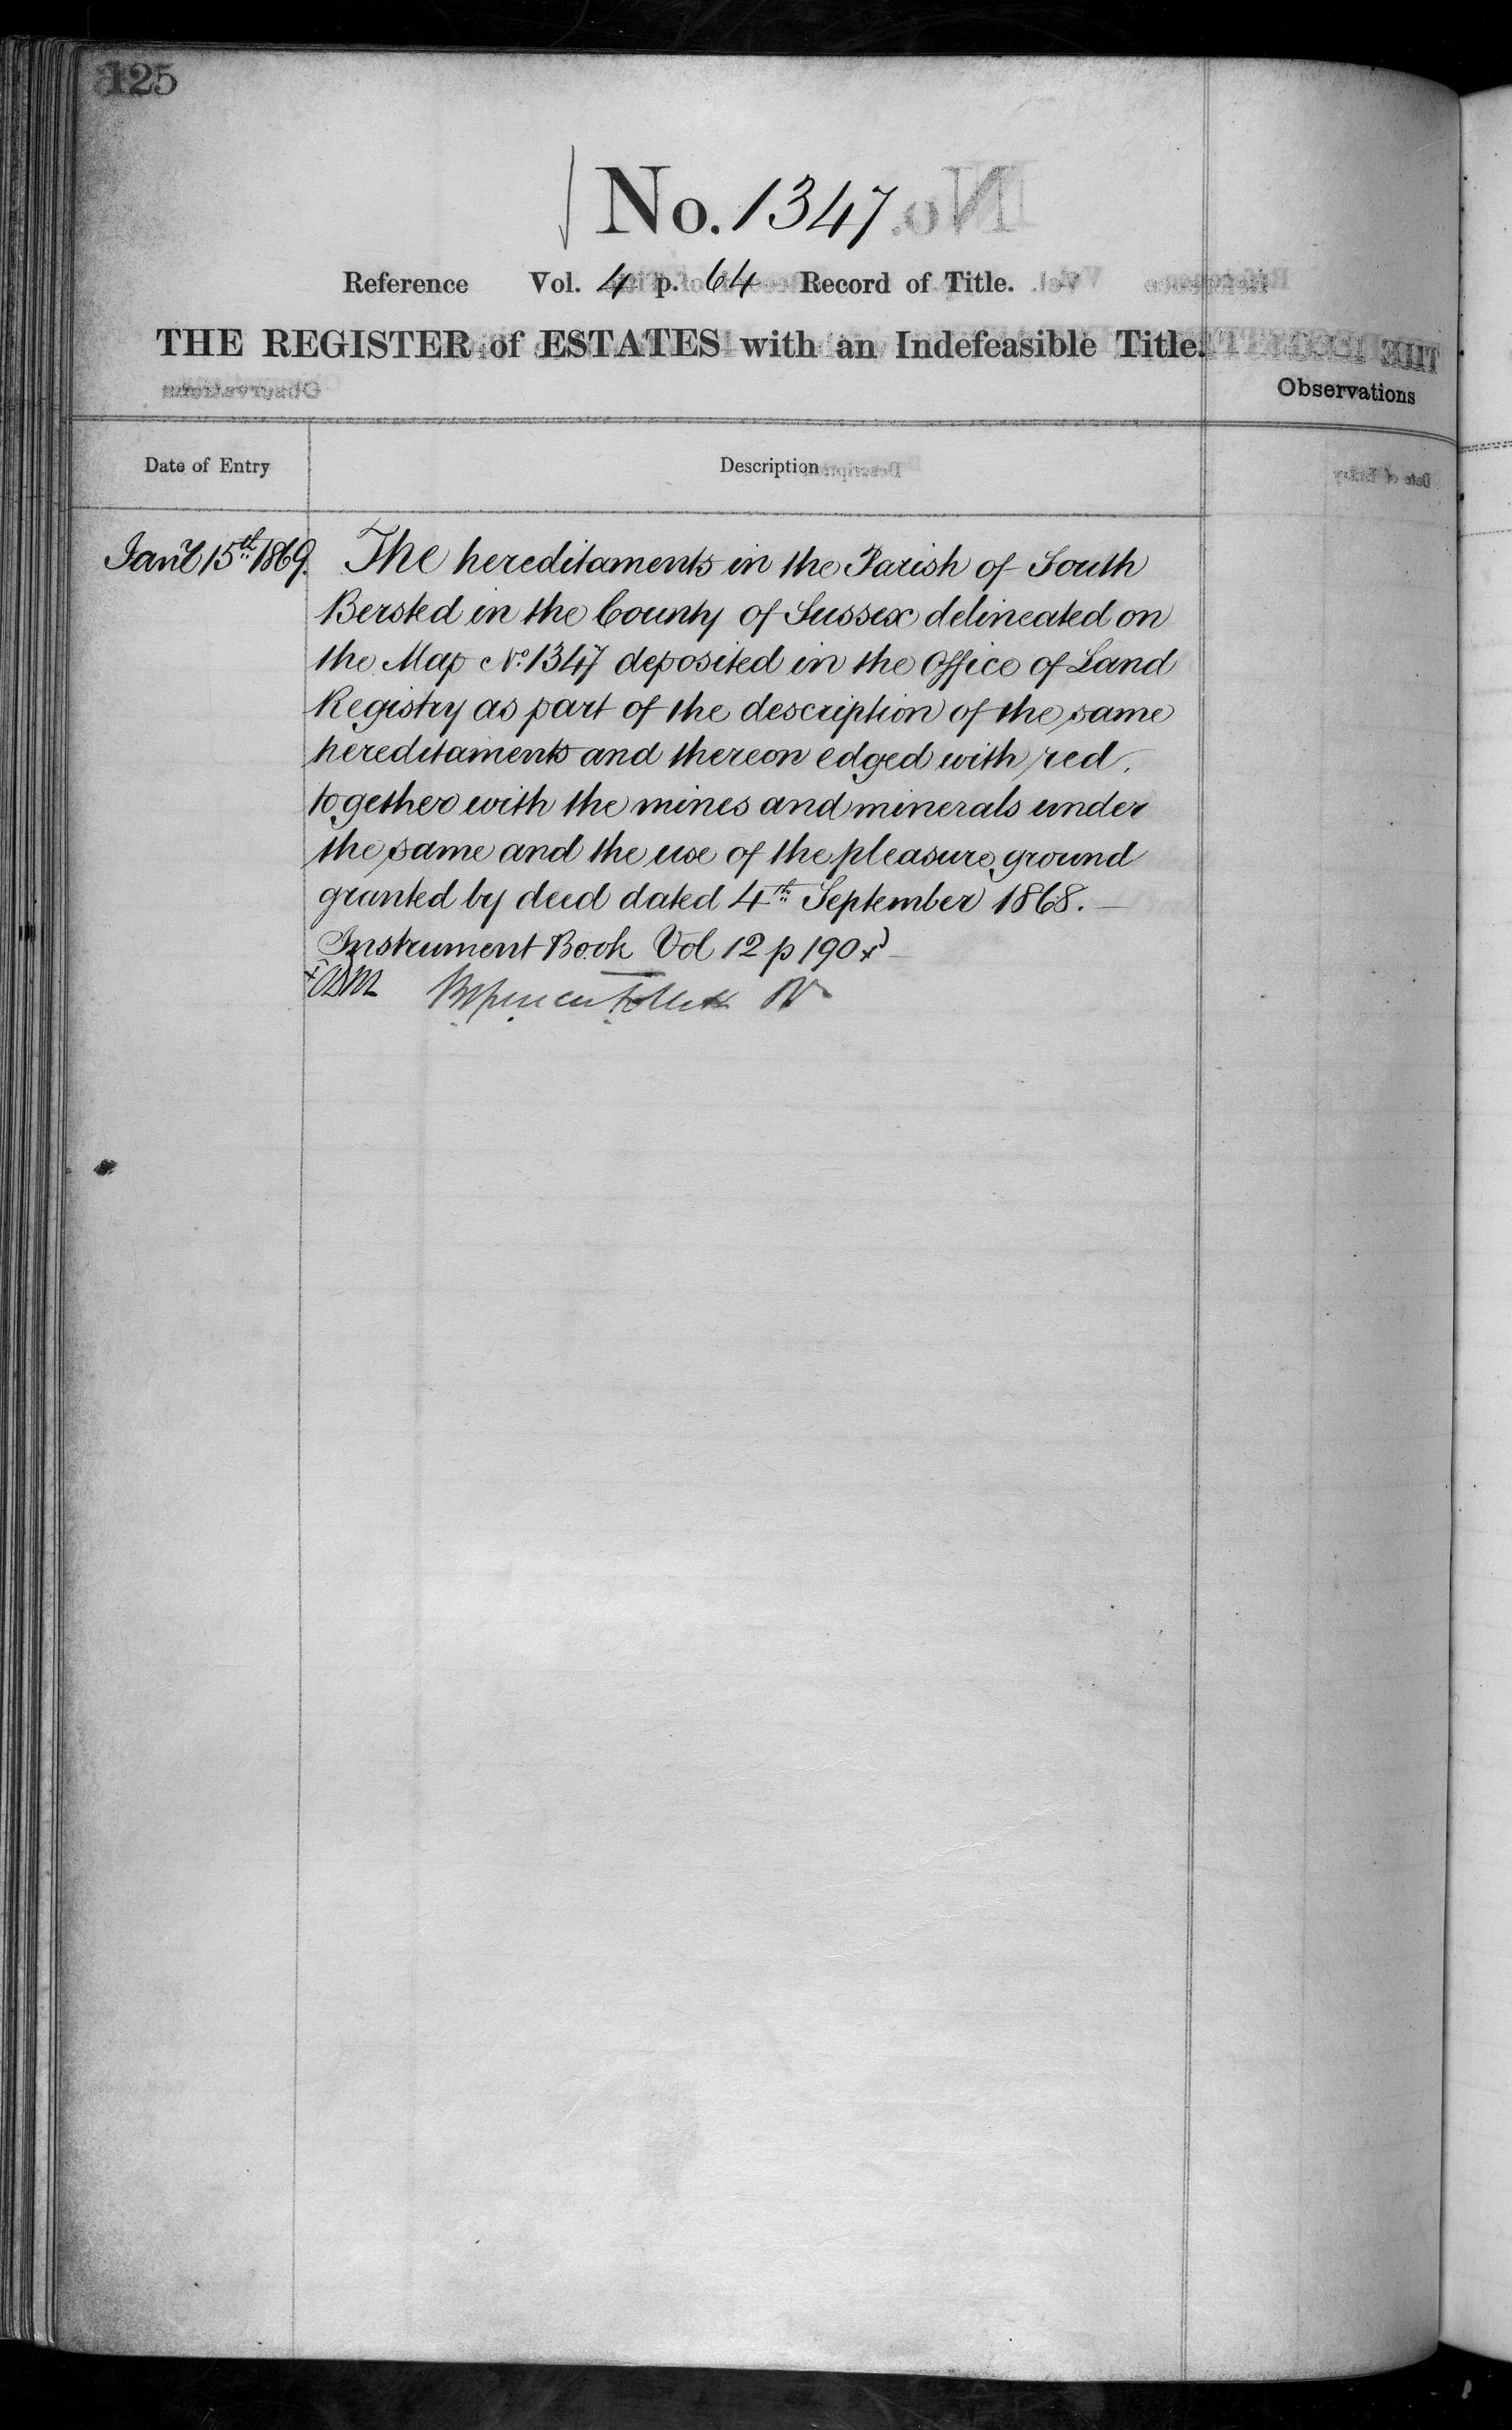 125
No. 1347
Reference Vol. 4 p. 64 Record of Title.
THE REGISTER of ESTATES with an Indefeasible Title.
Observations
Date of Entry
Description
Jany 15th 1869. The hereditaments in the Parish of South
Bersted in the County of Sussex delineated on
the Map No. 1347 deposited in the Office of Land
Registry as part of the description of the same
hereditaments and thereon edged with red,
together with the mines and minerals under
the same and the use of the pleasure ground
granted by deed dated 4th September 1868.—
Instrument Book Vol 12 p 190 x) —